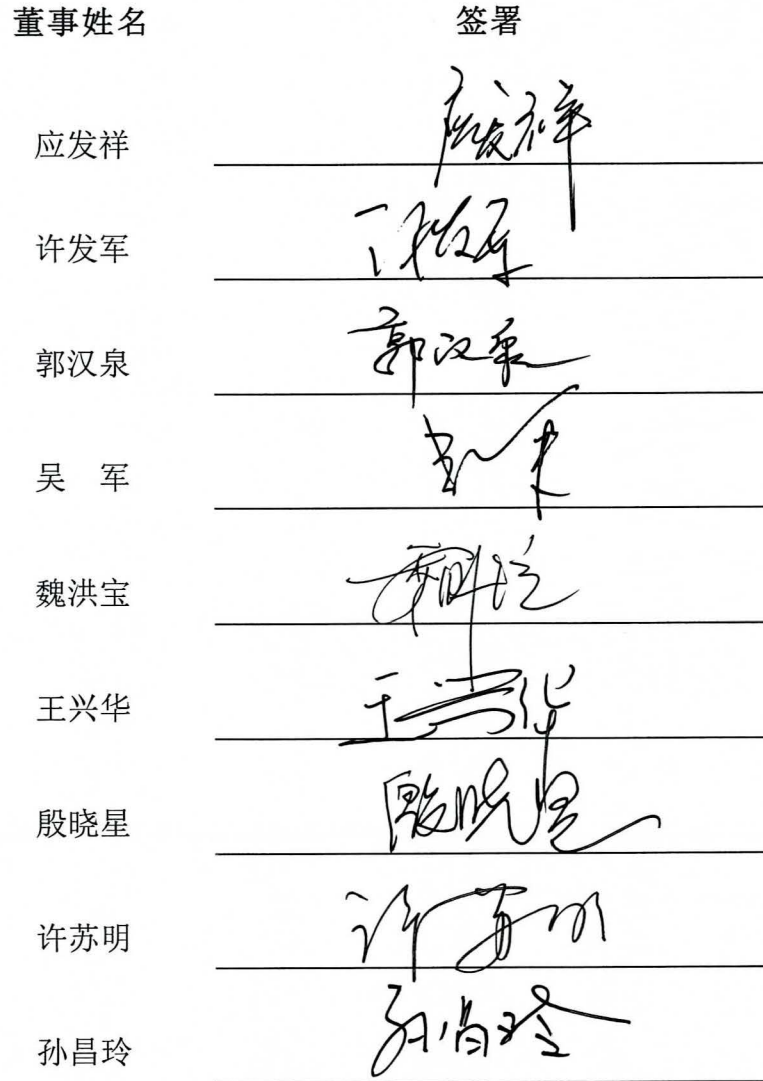 董事姓名 签署
应发祥 应发祥
许发军 许发军
郭汉泉 郭汉泉
吴 军 吴军
魏洪宝
王兴华 王兴华
殷晓星 殷晓星
许苏明 许苏明
孙昌玲 孙昌玲